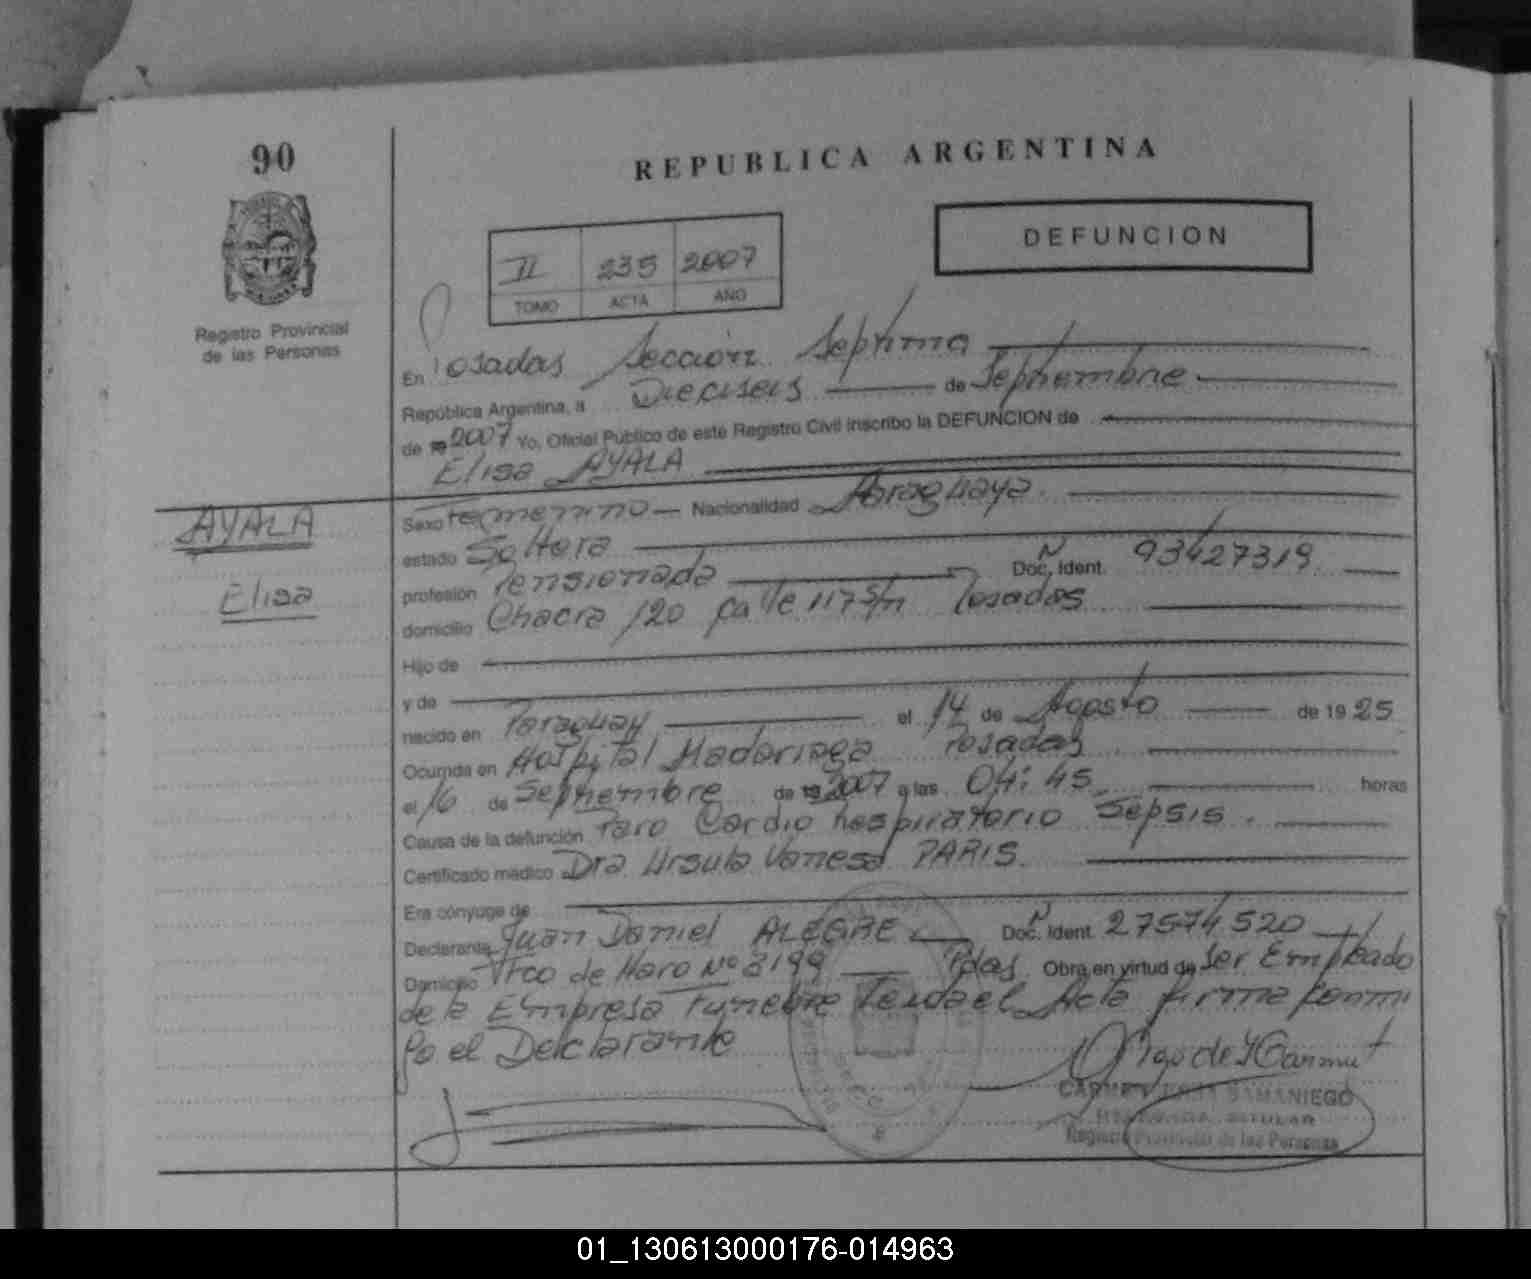 90
REPUBLICA ARGENTINA
DEFUNCION
II 235 2007
TOMO ACTA AÑO
Registro Provincial
de las Personas
En Posadas Sección Septima
República Argentina, a Dieciseis de Septiembre
de 19 2007 Yo, Oficial Público de este Registro Civil inscribo la DEFUNCION de
Elisa AYALA
AYALA
Elisa
Sexo Femenino Nacionalidad Paraguaya
estado Soltera
profesión Pensionada Doc. Ident. N 93427319
domicilio Chacra 120 calle 117 S/n Posadas
Hijo de
y de
nacido en Paraguay el 14 de Agosto de 19 25
Ocurrida en Hospital Madariaga Posadas
el 16 de Septiembre de 19 2007 a las 04:45 horas
Causa de la defunción Paro Cardio respiratorio Sepsis.
Certificado médico Dra. Ursula Vanesa PARIS
Era cónyuge de
Declarante Juan Daniel ALEGRE Doc. Ident. N 27574520
Domicilio Fco de Haro Nº 3199 Pdas Obra en virtud de Ser Empleado
de la Empresa Funebre Acta firma conmi
go el Declarante
CARMEN SAMANIEGO
TITULAR
Registro Provincial de las Personas
01_130613000176-014963